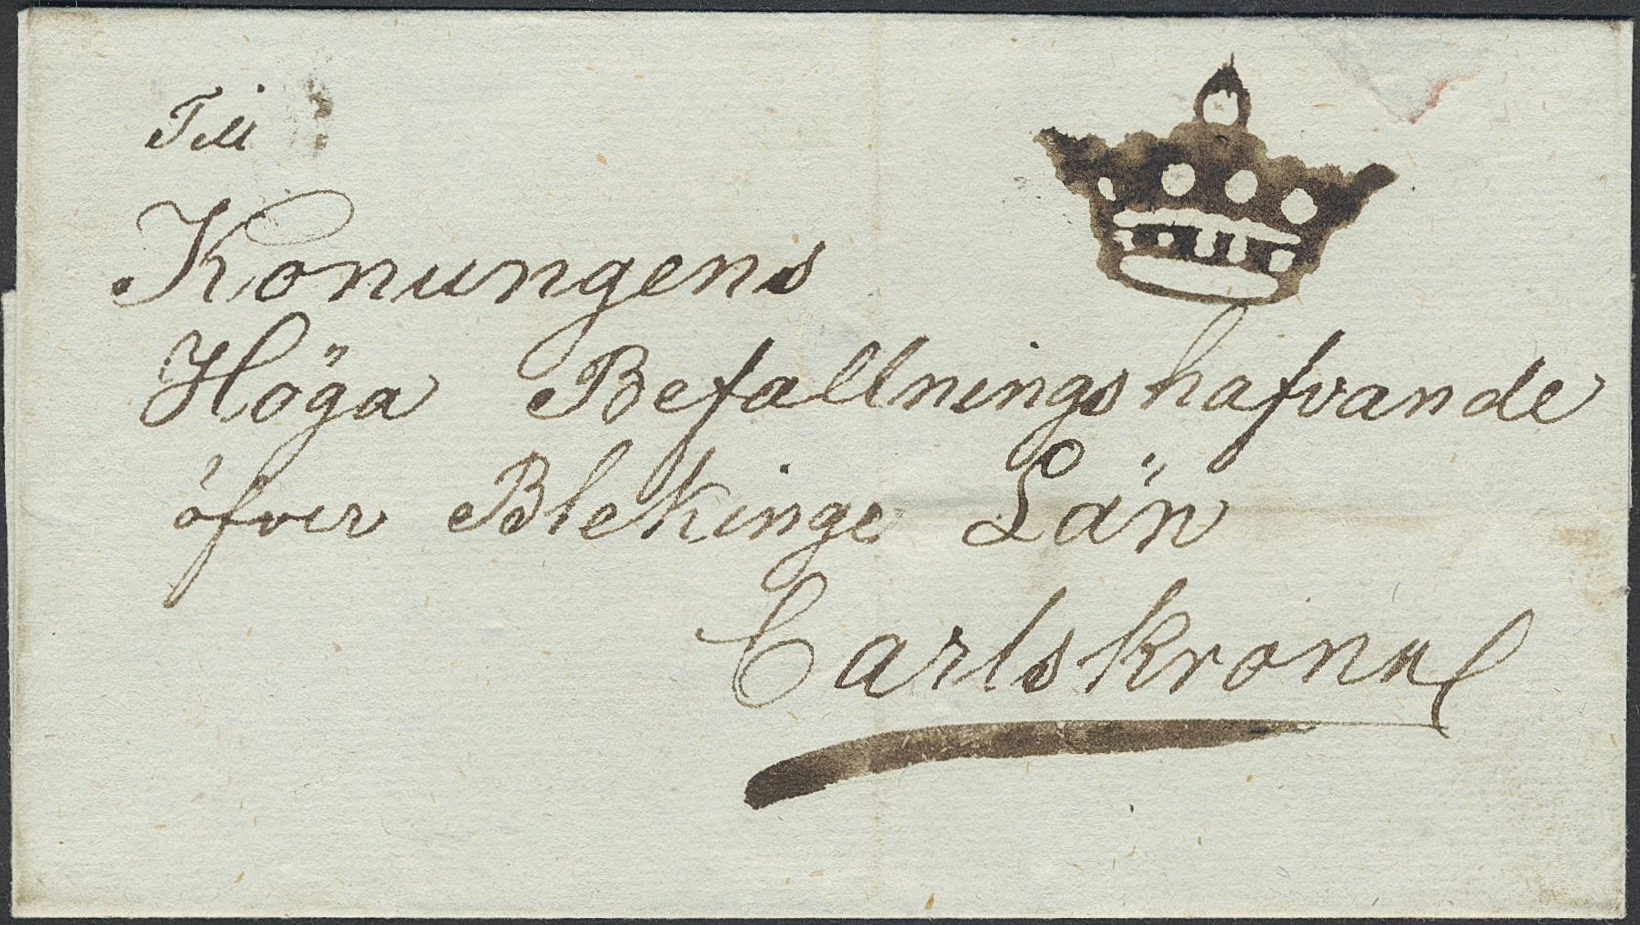 Till
Konungens
Höga Befallningshafvande
öfver Blekinge Län
Carlskrona